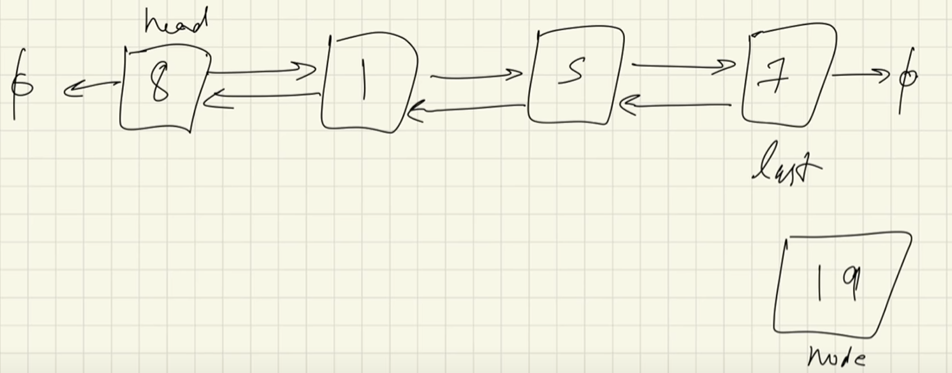 head
ϕ 8 1 5 7 ϕ
last
19
node